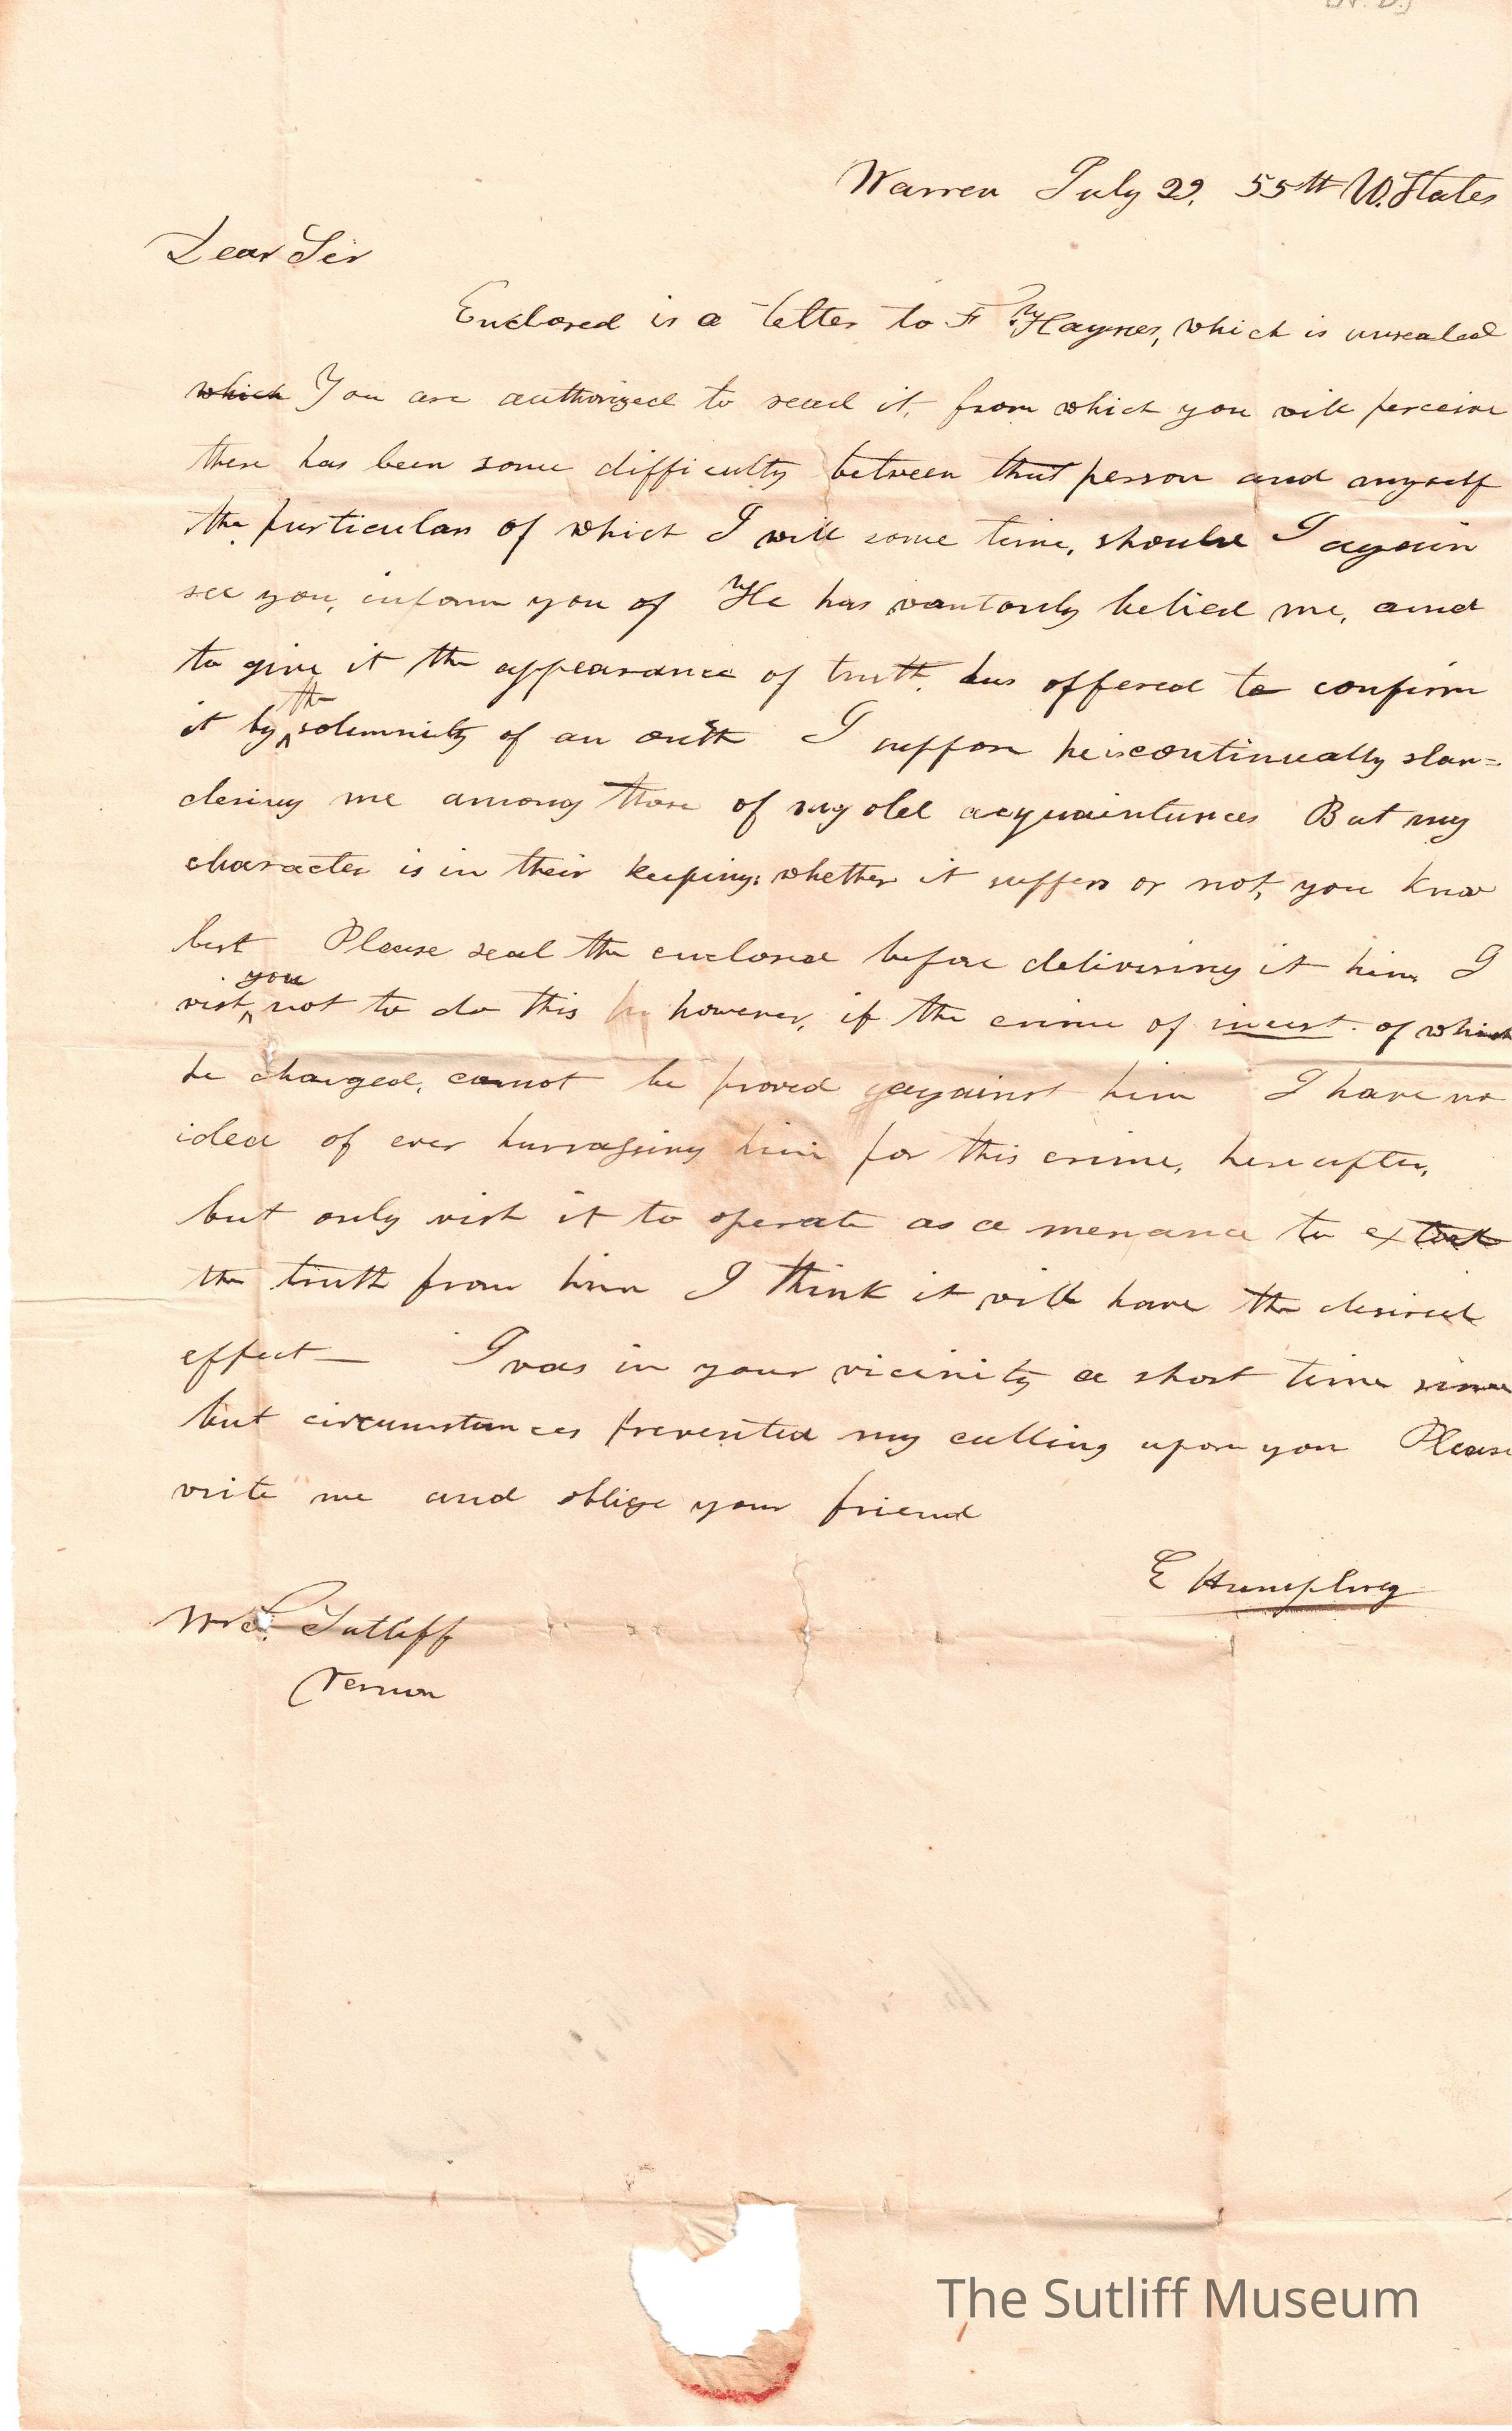 [N. D.]
Warren July 29. 55th U. States
Dear Sir
Enclosed is a letter to F Haynes, which is unsealed
which You are authorized to read it, from which you will perceive
there has been some difficulty between that person and myself
the particulars of which I will some time, should I again
see you, inform you of He has wantonly belied me, and
to give it the appearance of truth, has offered to confirm
it by the solemnity of an oath I suppose he is continually slan=
dering me among those of my old acquaintances But my
character is in their keeping; whether it suffers or not, you know
best Please seal the enclosed before delivering it him I
wish you not to do this however, if the crime of incest. of which
he charged, cannot be proved against him I have no
idea of ever harrassing him for this crime, hereafter,
but only wish it to operate as a menace to extort
the truth from him I think it will have the desired
effect— I was in your vicinity a short time since
but circumstances prevented my calling upon you Please
write me and oblige your friend
E Humphrey
Sutliff
Vernon
The Sutliff Museum